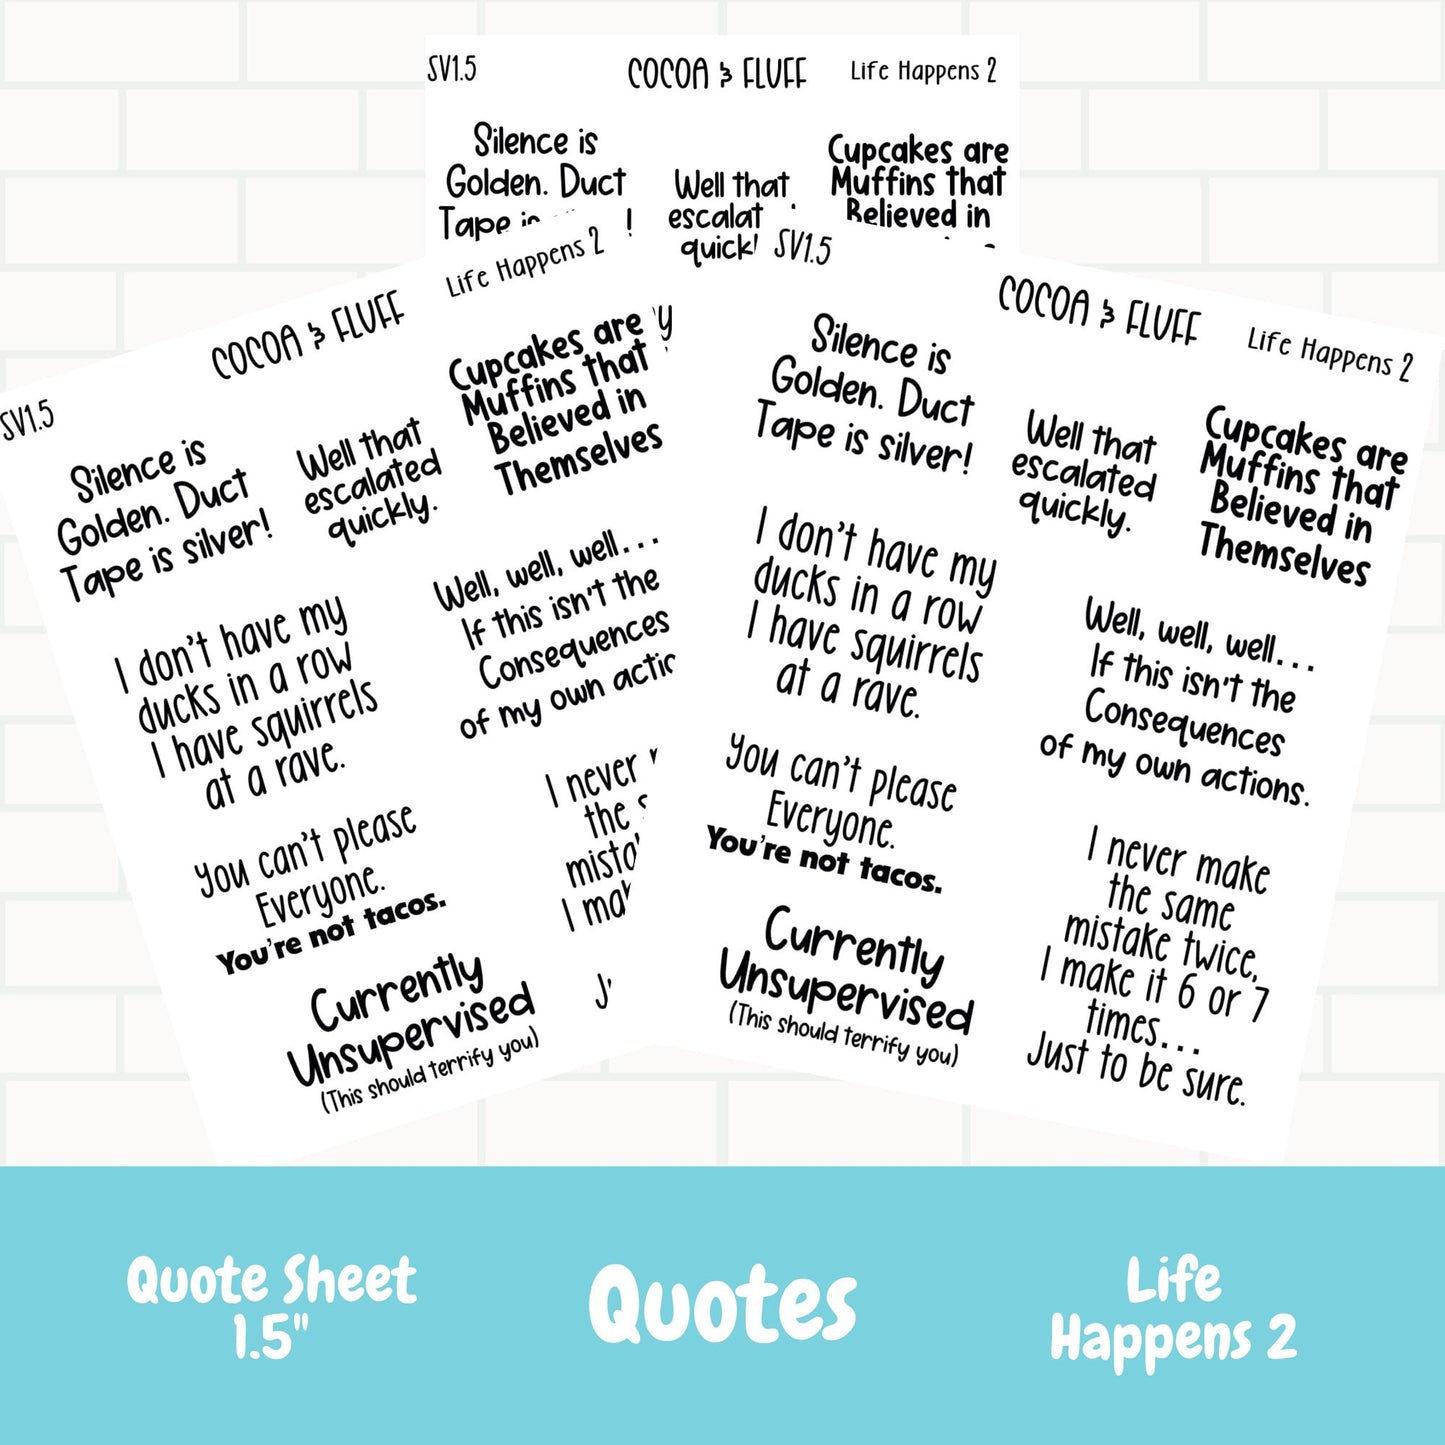 SV1.5
COCOA & FLUFF
Life Happens 2
Silence is
Golden. Duct
Tape is !
Well that
escalat
quick
Cupcakes are
Muffins that
Believed in
SV1.5
COCOA & FLUFF
Life Happens 2
Silence is
Golden. Duct
Tape is silver!
Well that
escalated
quickly.
Cupcakes are
Muffins that
Believed in
Themselves
I don't have my
ducks in a row
I have squirrels
at a rave.
Well, well, well...
If this isn't the
Consequences
of my own actio
You can't please
Everyone.
You're not tacos.
I never
the s
mista
I ma
Currently
Unsupervised
(This should terrify you)
SV1.5
COCOA & FLUFF
Life Happens 2
Silence is
Golden. Duct
Tape is silver!
Well that
escalated
quickly.
Cupcakes are
Muffins that
Believed in
Themselves
I don't have my
ducks in a row
I have squirrels
at a rave.
Well, well, well...
If this isn't the
Consequences
of my own actions.
You can't please
Everyone.
You're not tacos.
I never make
the same
mistake twice,
I make it 6 or 7
times...
Just to be sure.
Currently
Unsupervised
(This should terrify you)
Quote Sheet
1.5"
Quotes
Life
Happens 2